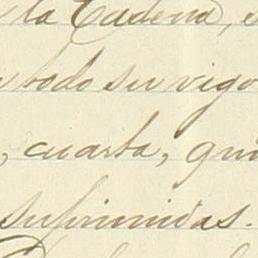 la Cadena,
todo su vigo
, cuarta, qui
suprimidas.